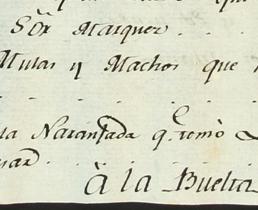 Sõr Marquez
Mulas y Machos que
la Naranjada q.e remò
À la Buelta